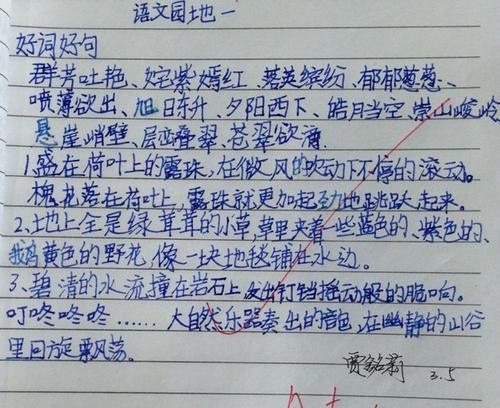 语文园地一
好词好句
群芳吐艳、姹紫嫣红、落英缤纷、郁郁葱葱、
喷薄欲出、旭日东升、夕阳西下、皓月当空、崇山峻岭、
悬崖峭壁、层峦叠翠、苍翠欲滴
1.盛在荷叶上的露珠,在微风的吹动下不停的滚动。
槐花落在荷叶上,露珠就更加起劲地跳跃起来。
2.土地上全是绿茸茸的小草,草里夹着一些蓝色的、紫色的、
黄色的野花,像一块地毯铺在水边。
3、碧清的水流撞在岩石上,发出钉铛摇动般的脆响。
叮咚咚咚……大自然乐器奏出的音色,在幽静的山谷
里回旋飘荡。
3.5